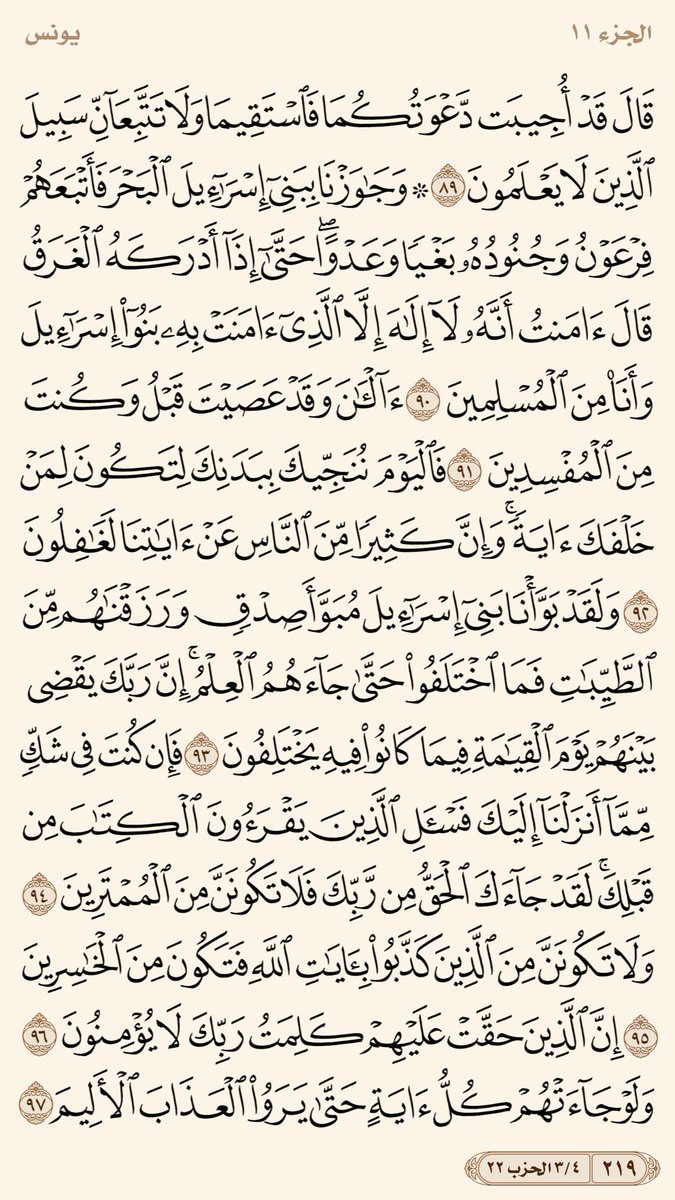 الجزء ١١ يونس
قَالَ قَدْ أُجِيبَت دَّعْوَتُكُمَا فَٱسْتَقِيمَا وَلَا تَتَّبِعَآنِّ سَبِيلَ
ٱلَّذِينَ لَا يَعْلَمُونَ ٨٩ ۞ وَجَٰوَزْنَا بِبَنِىٓ إِسْرَٰٓءِيلَ ٱلْبَحْرَ فَأَتْبَعَهُمْ
فِرْعَوْنُ وَجُنُودُهُۥ بَغْيًا وَعَدْوًا ۖ حَتَّىٰٓ إِذَآ أَدْرَكَهُ ٱلْغَرَقُ
قَالَ ءَامَنتُ أَنَّهُۥ لَآ إِلَٰهَ إِلَّا ٱلَّذِىٓ ءَامَنَتْ بِهِۦ بَنُوٓا۟ إِسْرَٰٓءِيلَ
وَأَنَا۠ مِنَ ٱلْمُسْلِمِينَ ٩٠ ءَآلْـَٰٔنَ وَقَدْ عَصَيْتَ قَبْلُ وَكُنتَ
مِنَ ٱلْمُفْسِدِينَ ٩١ فَٱلْيَوْمَ نُنَجِّيكَ بِبَدَنِكَ لِتَكُونَ لِمَنْ
خَلْفَكَ ءَايَةً ۚ وَإِنَّ كَثِيرًا مِّنَ ٱلنَّاسِ عَنْ ءَايَٰتِنَا لَغَٰفِلُونَ
٩٢ وَلَقَدْ بَوَّأْنَا بَنِىٓ إِسْرَٰٓءِيلَ مُبَوَّأَ صِدْقٍ وَرَزَقْنَٰهُم مِّنَ
ٱلطَّيِّبَٰتِ فَمَا ٱخْتَلَفُوا۟ حَتَّىٰ جَآءَهُمُ ٱلْعِلْمُ ۚ إِنَّ رَبَّكَ يَقْضِى
بَيْنَهُمْ يَوْمَ ٱلْقِيَٰمَةِ فِيمَا كَانُوا۟ فِيهِ يَخْتَلِفُونَ ٩٣ فَإِن كُنتَ فِى شَكٍّ
مِّمَّآ أَنزَلْنَآ إِلَيْكَ فَسْـَٔلِ ٱلَّذِينَ يَقْرَءُونَ ٱلْكِتَٰبَ مِن
قَبْلِكَ ۚ لَقَدْ جَآءَكَ ٱلْحَقُّ مِن رَّبِّكَ فَلَا تَكُونَنَّ مِنَ ٱلْمُمْتَرِينَ ٩٤
وَلَا تَكُونَنَّ مِنَ ٱلَّذِينَ كَذَّبُوا۟ بِـَٔايَٰتِ ٱللَّهِ فَتَكُونَ مِنَ ٱلْخَٰسِرِينَ
٩٥ إِنَّ ٱلَّذِينَ حَقَّتْ عَلَيْهِمْ كَلِمَتُ رَبِّكَ لَا يُؤْمِنُونَ ٩٦
وَلَوْ جَآءَتْهُمْ كُلُّ ءَايَةٍ حَتَّىٰ يَرَوُا۟ ٱلْعَذَابَ ٱلْأَلِيمَ ٩٧
٢١٩ ٣/٤ الحزب ٢٢